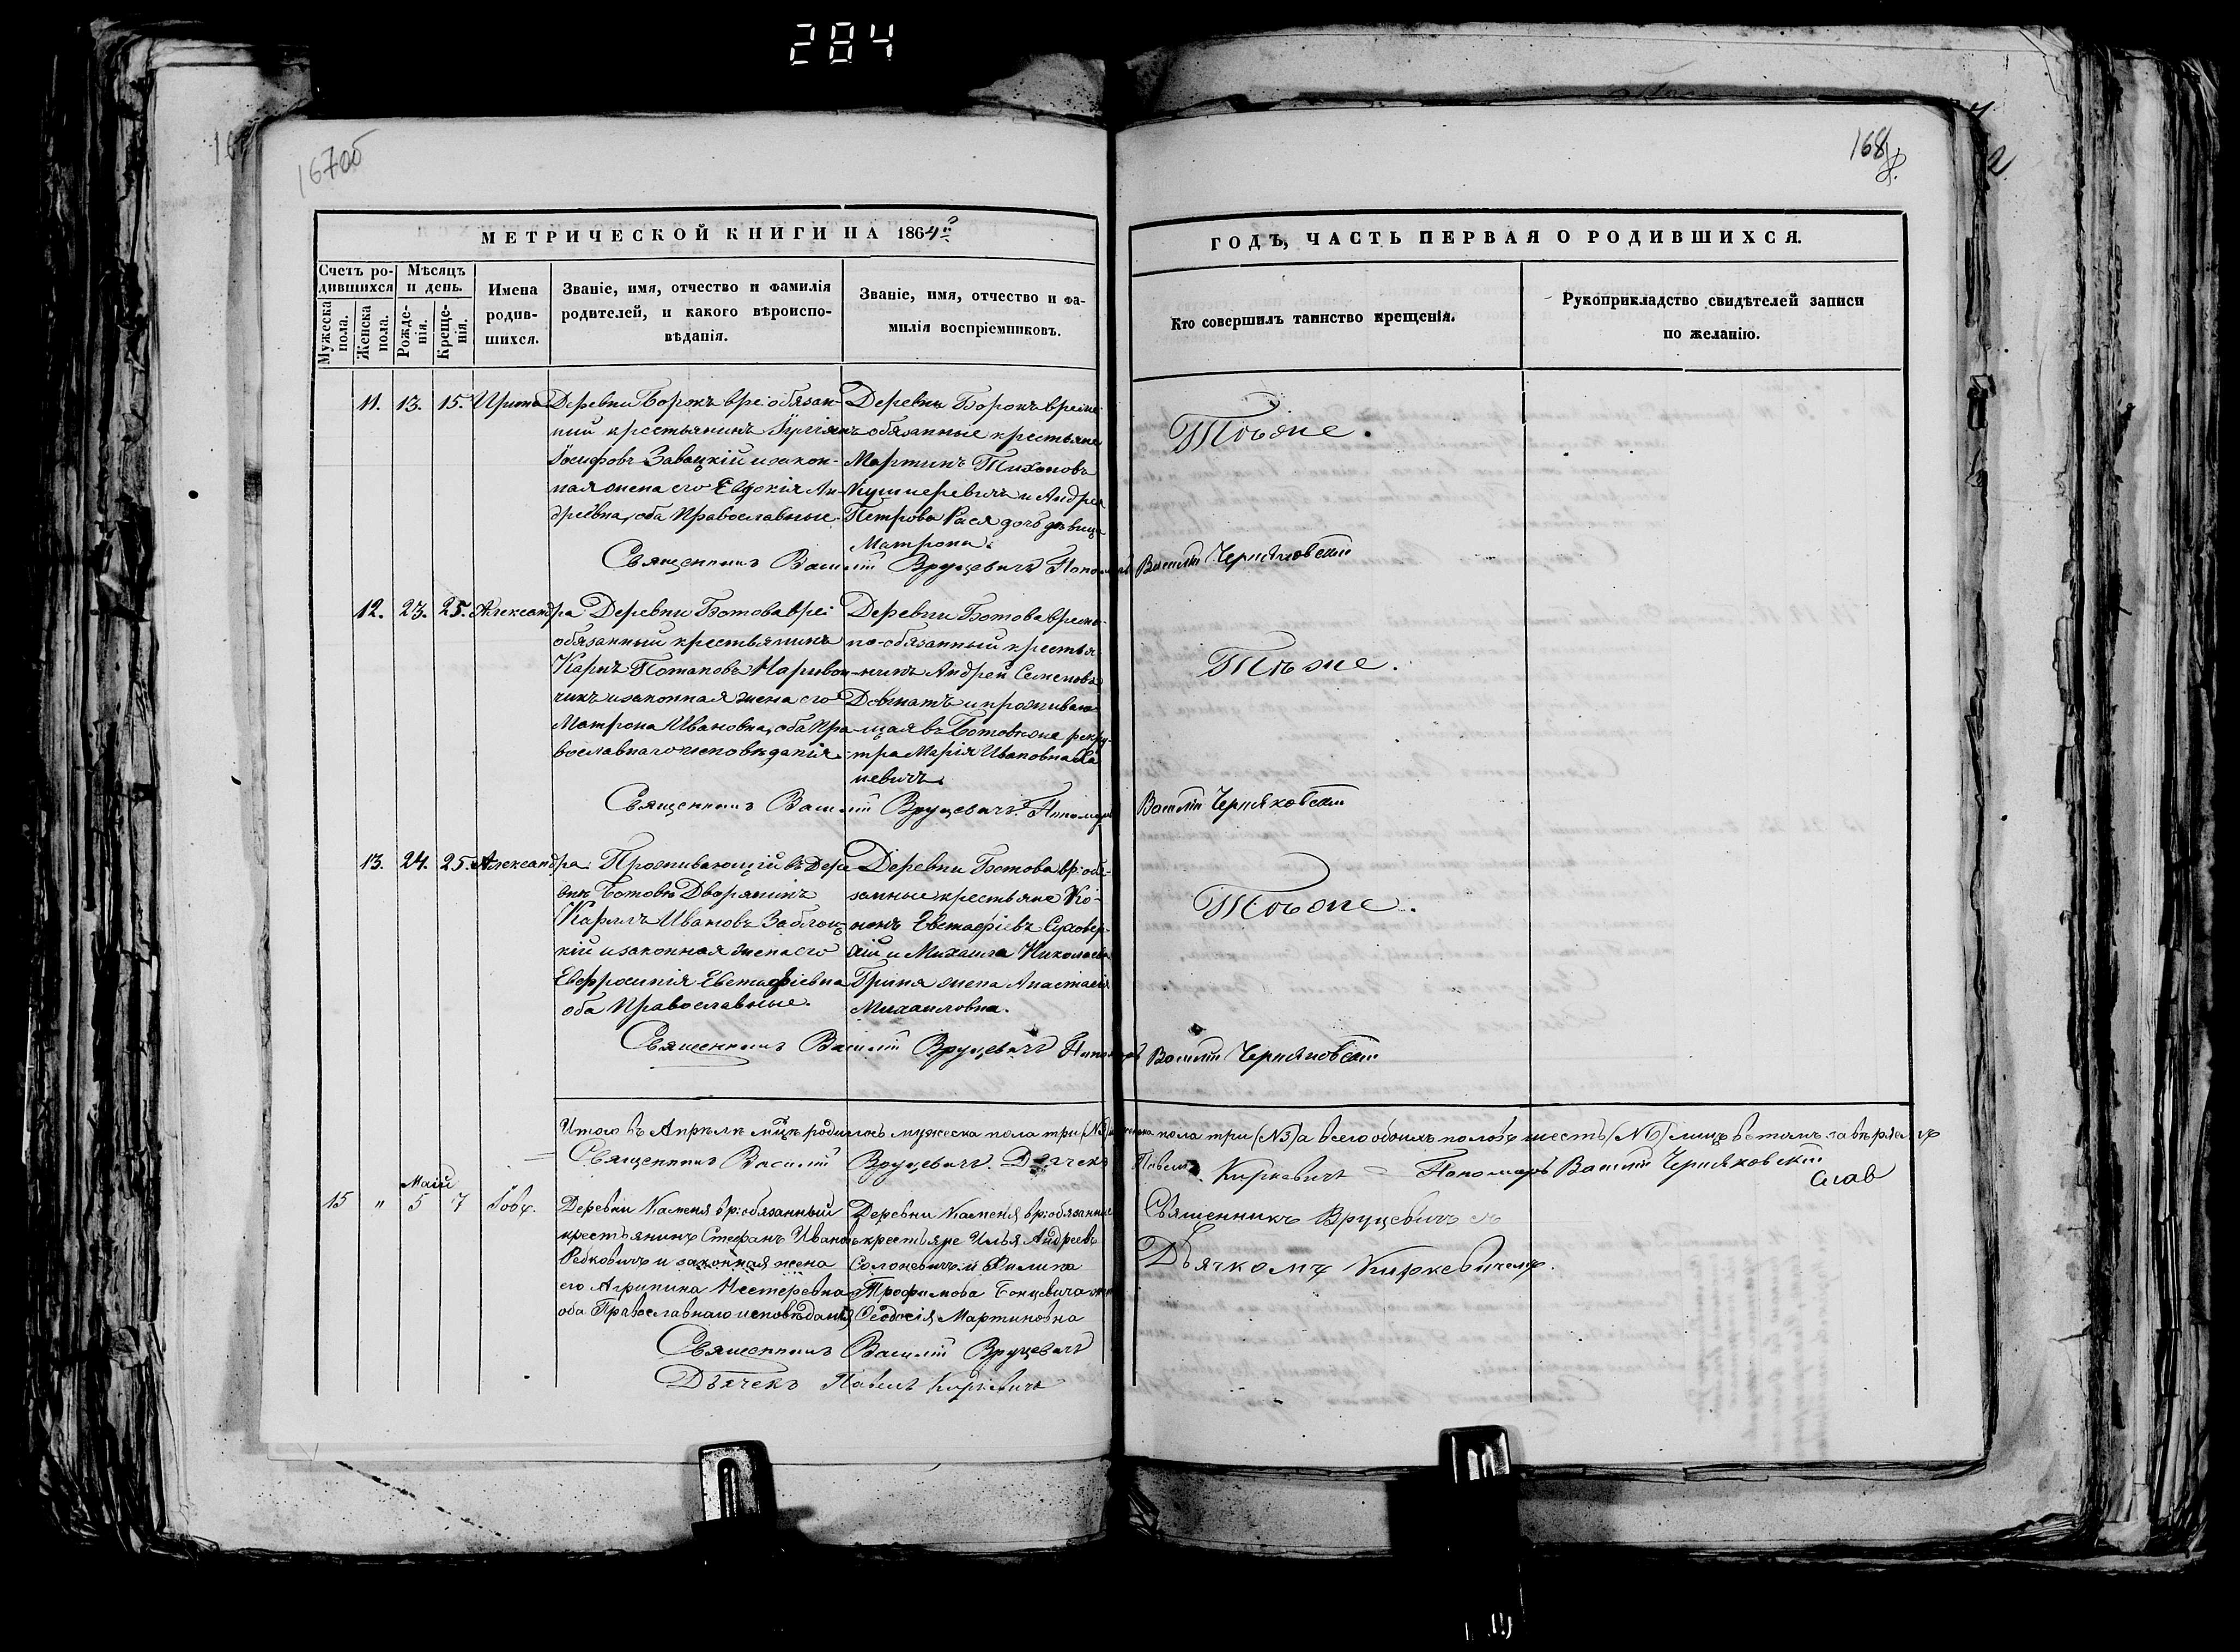 284
167об
168
МЕТРИЧЕСКОЙ КНИГИ НА 1864й
ГОДЪ, ЧАСТЬ ПЕРВАЯ О РОДИВШИХСЯ.
Счетъ ро-
дившихся
Мужеска пола.
Женска пола.
Мѣсяцъ
и день.
Рожде-
нія.
Креще-
нія.
Имена
родив-
шихся.
Званіе, имя, отчество и фамилія
родителей, и какого вѣроиспо-
вѣданія.
Званіе, имя, отчество и фа-
милія воспріемниковъ.
Кто совершилъ таинство крещенія.
Рукоприкладство свидѣтелей записи
по желанію.
11. 13. 15. Ирина
Деревни Борокъ вре: обязан-
ный крестьянинъ
Іосифовъ Завацкій и закон-
ная жена его Евдокія Ан-
дреевна, оба Православные.
Деревни Борокъ времен:
обязанные крестьяне
Мартинъ Тихоновъ
Кушнеревичъ и Андрея
Петрова Рася дочь дѣвица
Матрона.
Тѣже.
Священникъ Василій Вруцевичъ Пономарь Василій Черняковскій
12. 23. 25. Александра
Деревни Ботова вре:
обязанный крестьянинъ
Карпъ Потаповъ Наривон-
чикъ и законная жена его
Матрона Ивановна, оба Пра-
вославнаго исповѣданія.
Деревни Ботова времен-
но-обязанный крестья-
нинъ Андрей Семеновъ
Довнатъ и проживаю-
щая въ Ботовѣ жена рекру-
тра Марія Ивановна
невичъ.
Тѣже.
Священникъ Василій Вруцевичъ. Пономарь Василій Черняковскій
13. 24. 25. Александра
Проживающій въ Дере-
внѣ Ботовѣ Дворянинъ
Карлъ Ивановъ Заблоц-
кій и законная жена его
Евфросинія Евстафіевна
оба Православные.
Деревни Ботова вр: обя-
занные крестьяне Ко-
нонъ Евстафіевъ Суховер-
хій и Михаила Николаева
Гриня жена Анастасія
Михаиловна.
Тѣже.
Священникъ Василій Вруцевичъ Пономарь Василій Черняковскій
Итого въ Апрѣлѣ мцѣ родилось мужеска пола три (№3) женска пола три (№3) а всего обоихъ половъ шесть (№6) лицъ въ томъ завѣряемъ
Священникъ Василій Вруцевичъ. Дьячекъ Павелъ Киркевичъ = Пономарь Василій Черняковскій
Маій
15 " 5 7 Іовъ.
Деревни Каменя вр: обязанный
крестьянинъ Стефанъ Ивановъ
Редковичъ и законная жена
его Агрипина Нестеровна
оба Православнаго исповѣданія
Деревни Каменя вр: обязанные
крестьяне Илья Андреевъ
Солоневичъ и Филипа
Трофимова Бонцевича жена
Ѳеодосія Мартиновна
Священникъ Вруцевичъ съ
Дьячкомъ Киркевичемъ.
Священникъ Василій Вруцевичъ
Дьячекъ Павелъ Киркевичъ